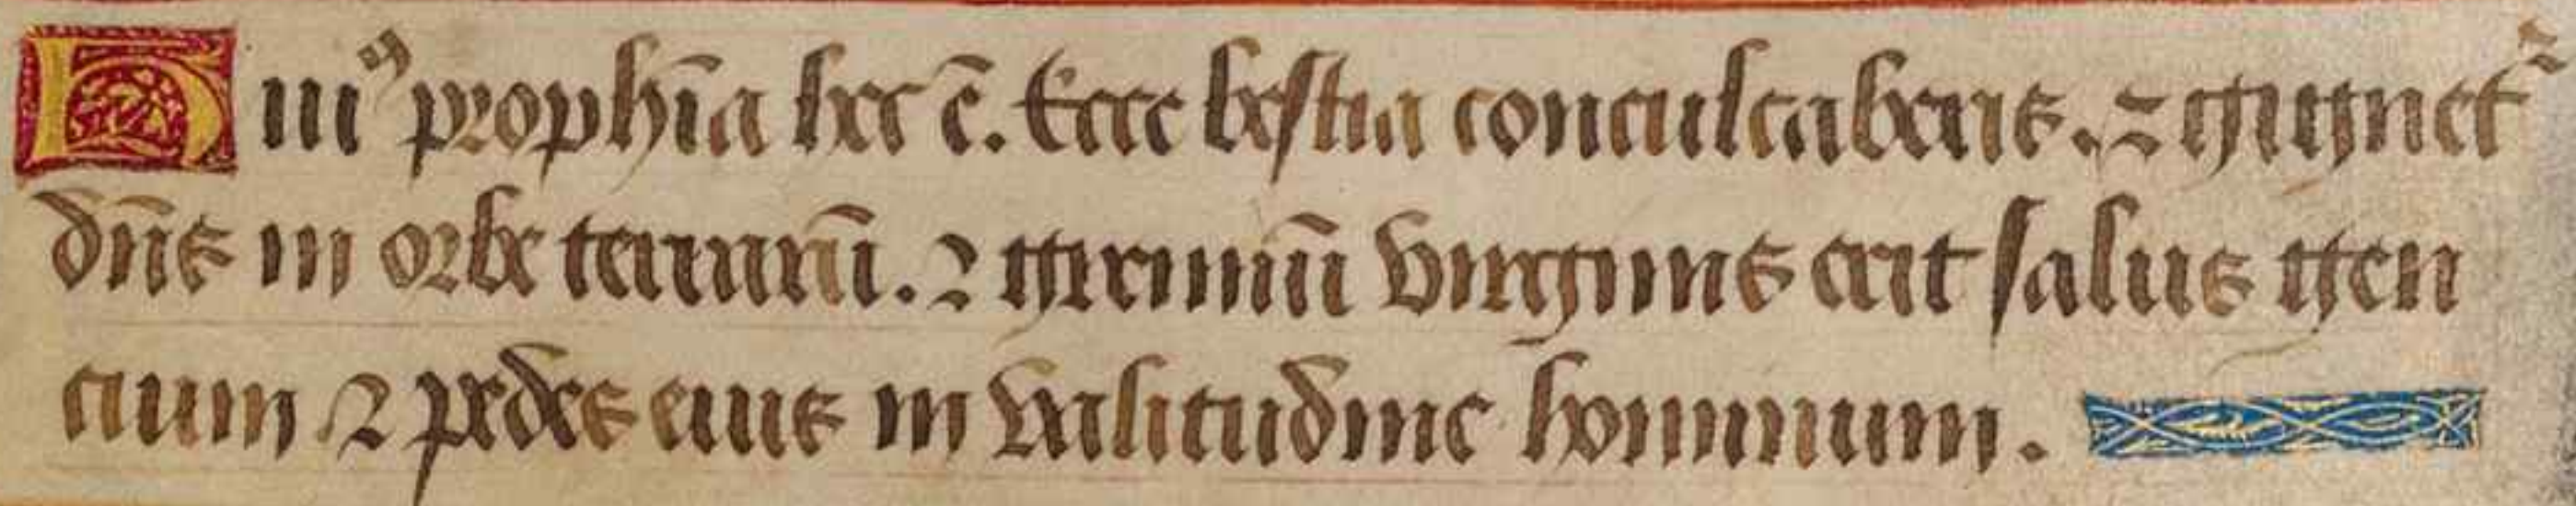 Huiꝰ prophīa hec ē. Ecce bestia conculcaberis. ⁊ gignet᷑
dn̄s in orbe terrarū. ⁊ gremiū virginis erit salus gen
cium ⁊ pedes eius in valitudine hominum.